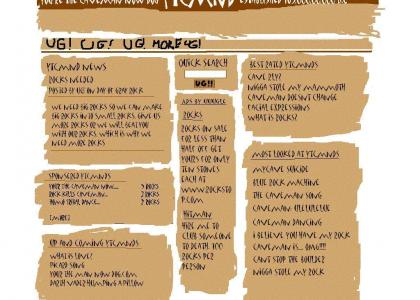 YOU'RE THE CAVEMAN NOW DOG
YTCMND
UG! UG! UG! MORE UG!
YTCMND NEWS
ROCKS NEEDED
POSTED BY UG ON DAY OF GRAY ROCK
WE NEED BIG ROCKS SO WE CAN MAKE
BIG ROCKS INTO SMALL ROCKS. GIVE US
MORE ROCKS OR WE WILL BEAT YOU
WITH OUR ROCKS. WHICH IS WHY WE
NEED MORE ROCKS
SPONSERED YTCMNDS
YOUR THE CAVEMAN NOW...
5 ROCKS
ROCK KILLS CAVEMAN...
2 ROCKS
HOMO TRIBAL DANCE...
2 ROCKS
(MORE)
UP AND COMING YTCMNDS
WHAT IS LOVE?
PICARD SONG
YOUR THE MAN NOW DOG.COM
DARTH VADER HUMPING A PILLOW
QUICK SEARCH
UG!!
ADS BY UUUGGLE
ROCKS
ROCKS ON SALE
FOR LESS THAN
HALF OFF. GET
YOURS FOR ONLY
TEN STONES
EACH AT
WWW.ROCKSTO
P.COM
HITMAN
HIRE ME TO
CLUB SOMEONE
TO DEATH. 100
ROCKS PER
PERSON
BEST RATED YTCMNDS
CAVE RLY?
NIGGA STOLE MY MAMMOTH
CAVEMAN DOESN'T CHANGE
FACIAL EXPRESSIONS
WHAT IS ROCKS?
MOST LOOKED AT YTCMNDS
MYCAVE SUICIDE
BLUE ROCK MACHINE
THE CAVEMAN SONG
CAVEMAN: ULULULULUK
CAVEMAN DANCING
I BELIEVE YOU HAVE MY ROCK
CAVEMAN IS... OMG!!!!
CAN'T STOP THE BOULDER
NIGGA STOLE MY ROCK